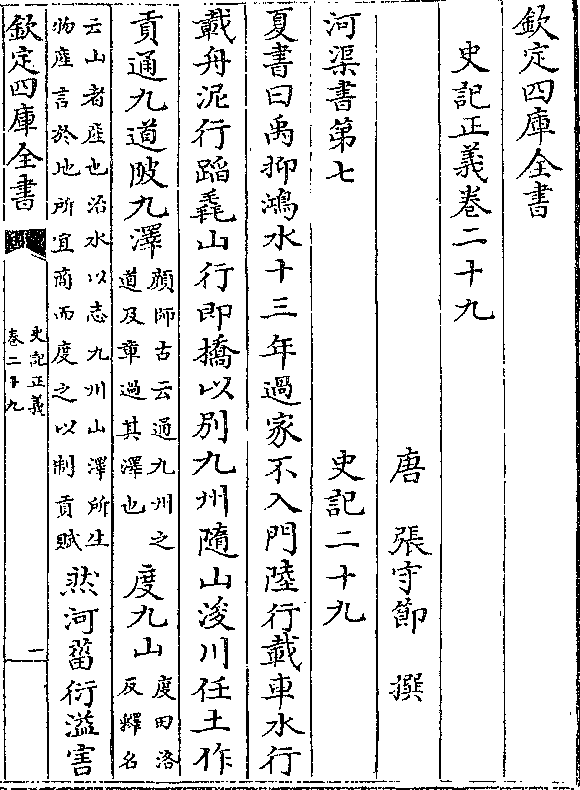 欽定四庫全書
史記正義卷二十九
唐 張守節 撰
河渠書第七 史記二十九
夏書曰禹抑鴻水十三年過家不入門陸行載車水行
載舟泥行蹈毳山行即橋以別九州隨山浚川任土作
貢通九道陂九澤
顔師古云通九州之
道及章過其澤也
度九山
度田洛
反釋名
云山者產也治水以志九州山澤所生
物產言於地所宜商而度之以制貢賦
然河菑衍溢害
欽定四庫全書
史記正義
卷二十九
一